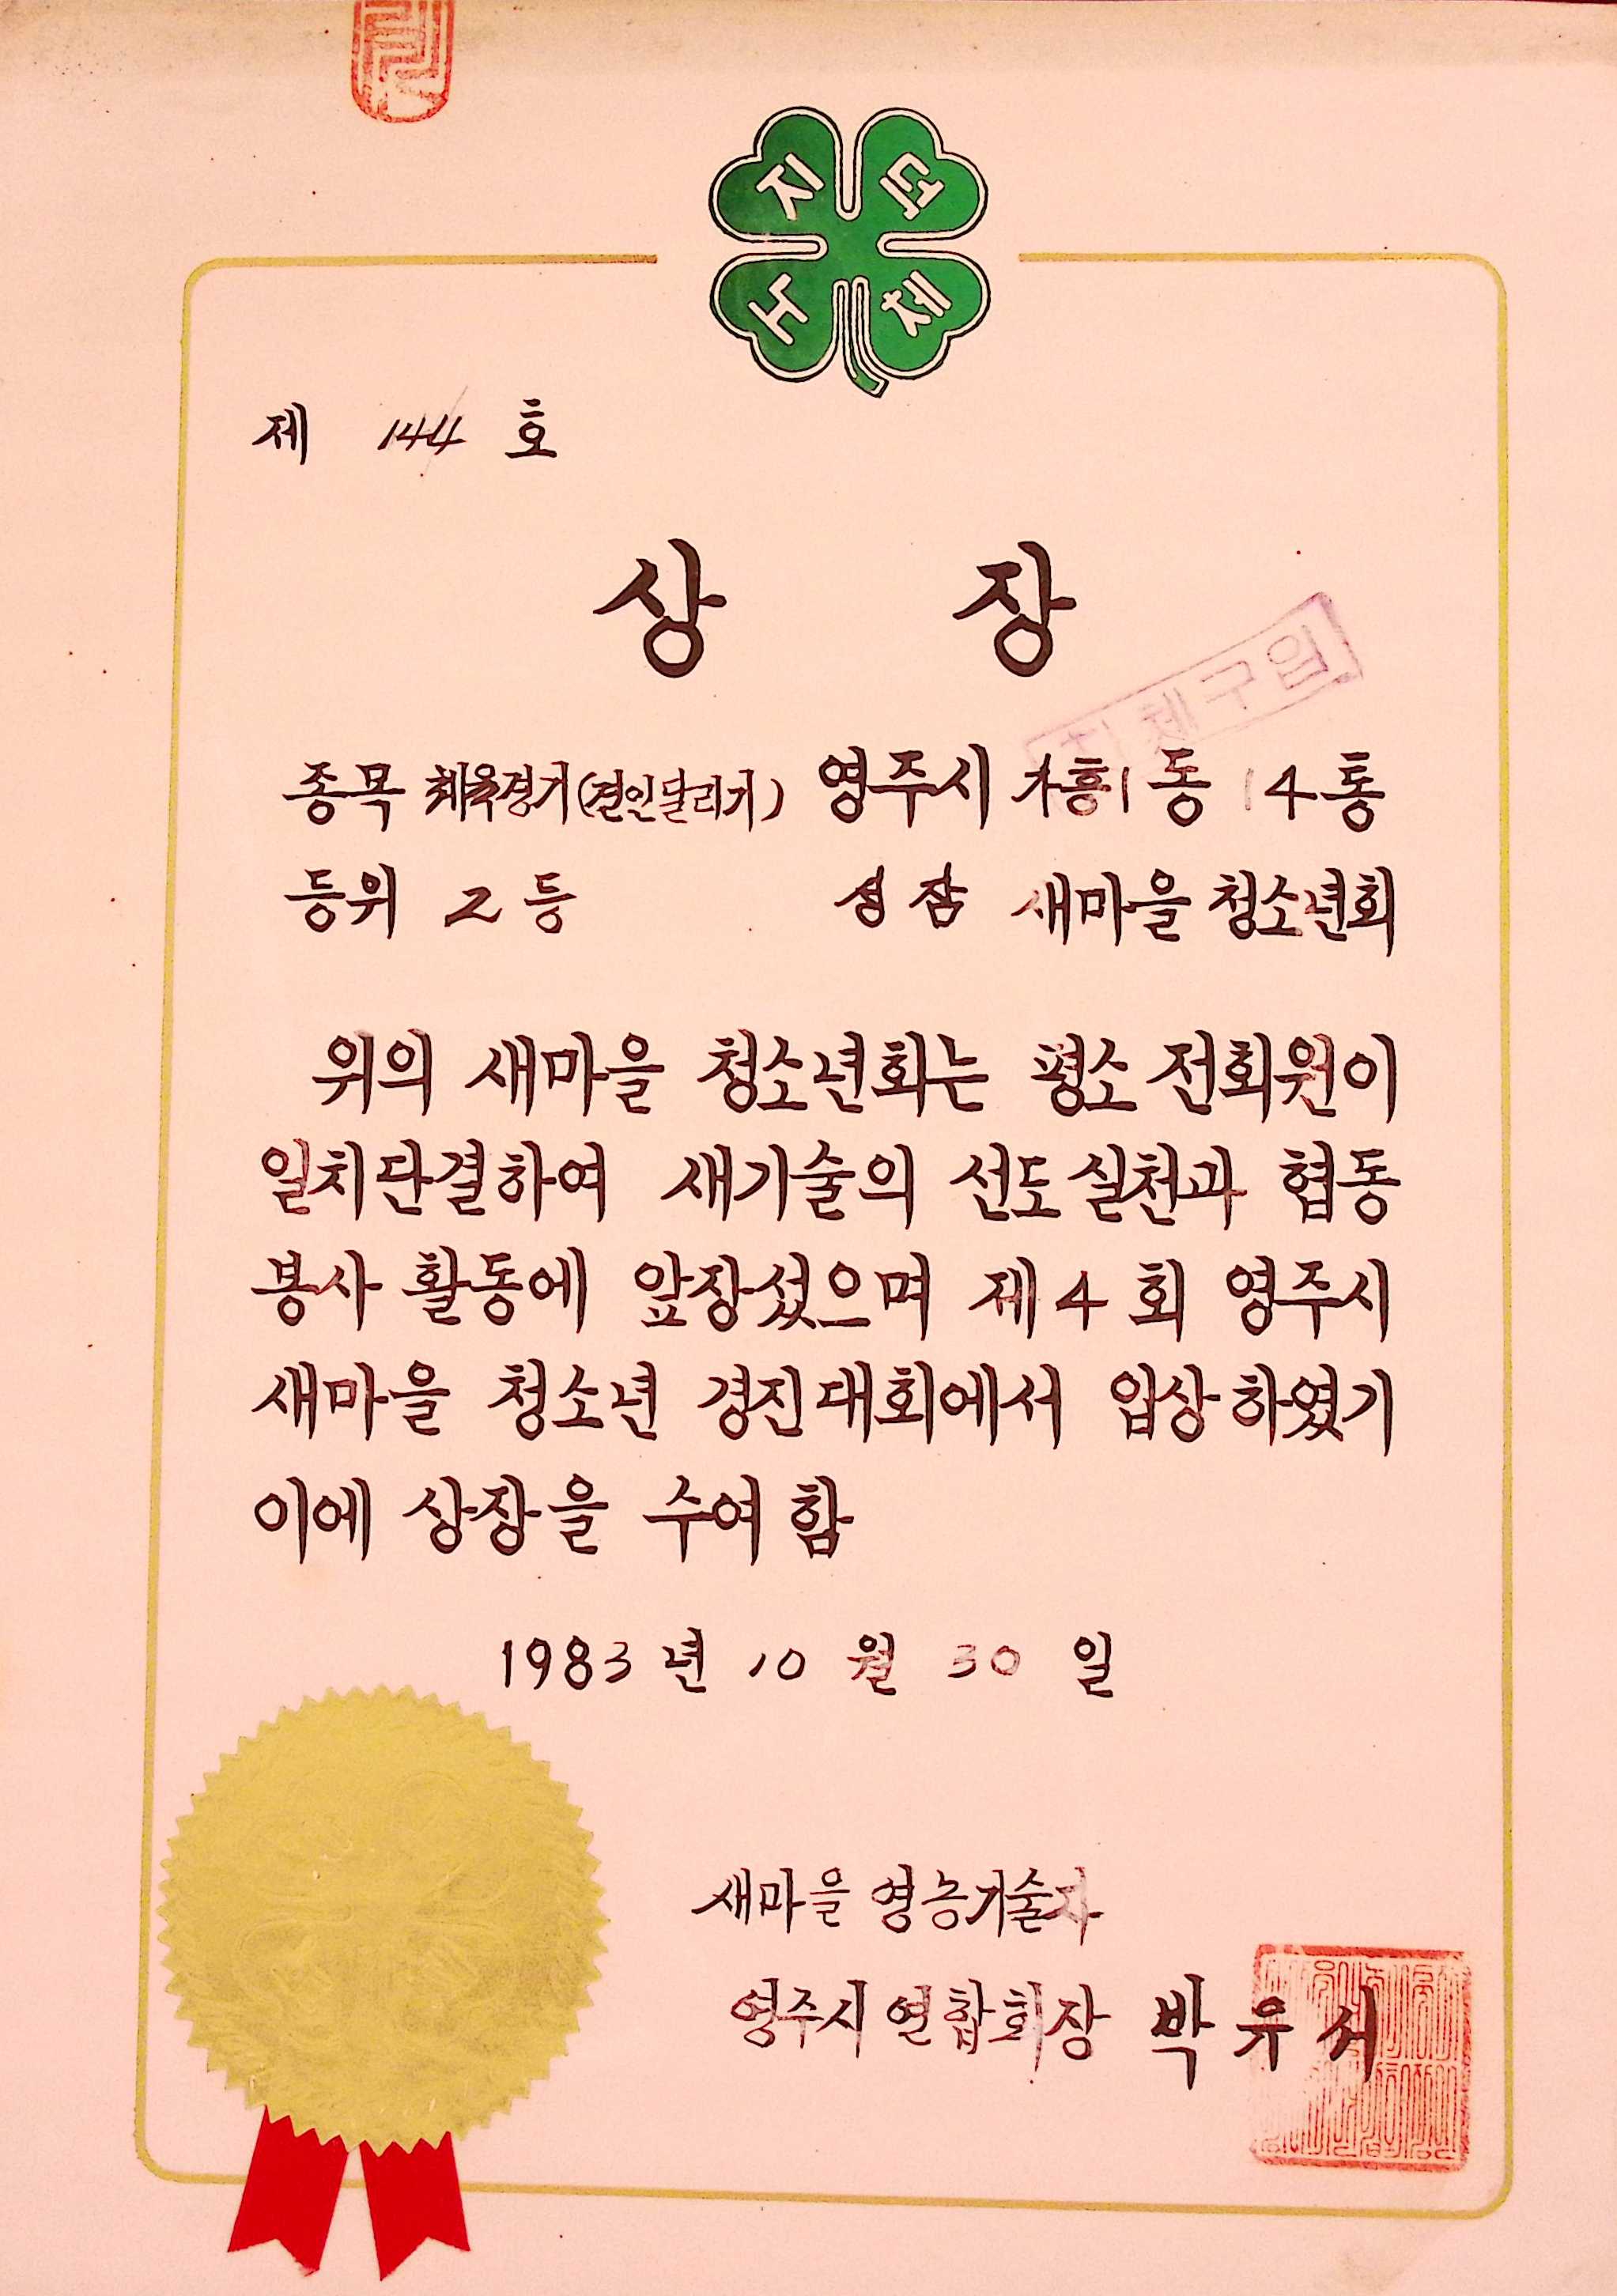 지 덕
노 체
제 144 호
상 장
자체구입
종목 체육경기(결인달리기) 영주시 가흥1동 14통
등위 2등 성잠 새마을 청소년회
위의 새마을 청소년회는 평소 전회원이
일치단결하여 새기술의 선도 실천과 협동
봉사 활동에 앞장섰으며 제4회 영주시
새마을 청소년 경진대회에서 입상하였기
이에 상장을 수여함
1983년 10월 30일
새마을 영농기술자
영주시 연합회장 박유서